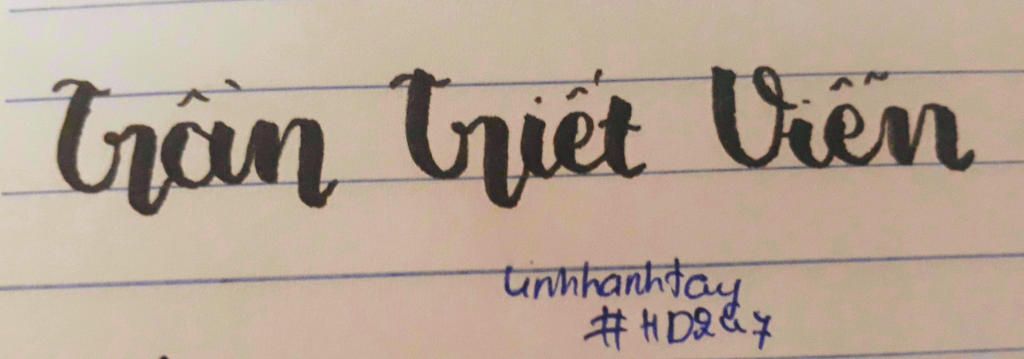 Trần Triết Viễn
Linhhanhtay
#HD247